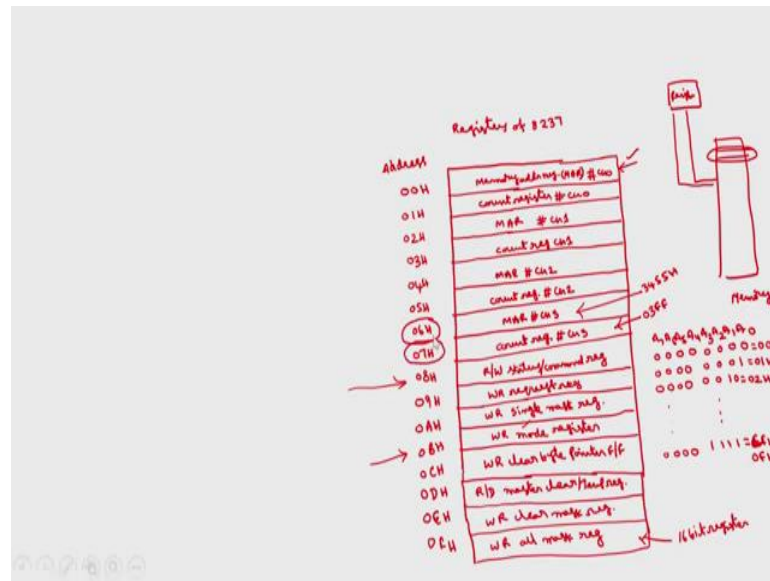 Registers of 8237
Address
00H Memory addr reg. (MAR) # CH0
01H count register # CH0
02H MAR # CH1
03H count reg CH1
04H MAR # CH2
05H count reg. # CH2
06H MAR # CH3
07H count reg. # CH3
08H R/W status/command reg
09H WR request reg
0AH WR single mask reg.
0BH WR mode register
0CH WR clear byte pointer F/F
0DH R/D master clear/
0EH WR clear mask reg.
0FH WR all mask reg
3455H
03FF
16 bit register
Memory
0 0 0 0 0 0 0 0 = 00
0 0 0 0 0 0 0 1 = 01H
0 0 0 0 0 0 1 0 = 02H
0 0 0 0 1 1 1 1 =